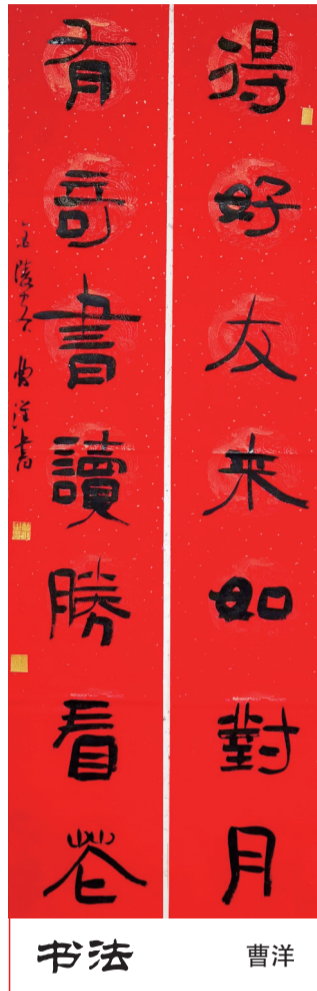 得好友来如對月
有奇書讀勝看花
曹洋書
书法 曹洋